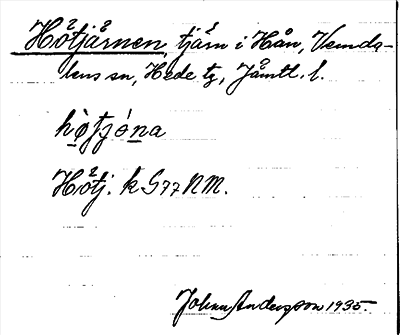 Håtjärnen, tjärn i Hån, Vemda-
lens sn, Hede tg, Jämtl. l.
hǫ̀tjǫ́na
Håtj. k S77 NM.
Johan Andersson 1935.